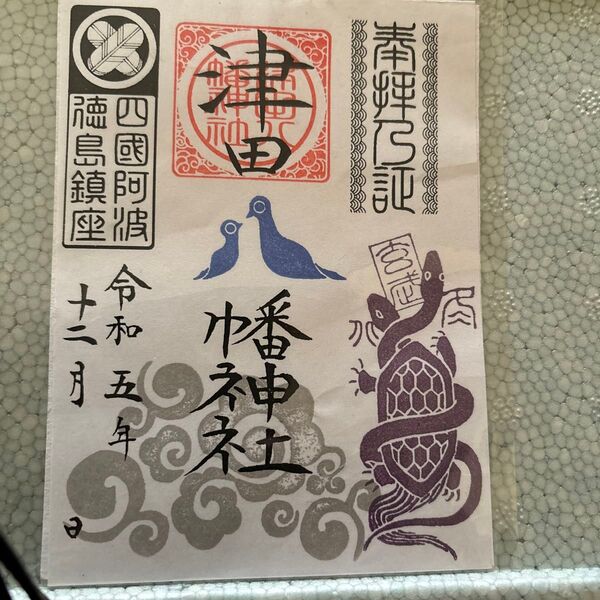 奉拝乃証
玄武
水
津田
幡神社
四國阿波
徳島鎮座
令和五年
十二月 日